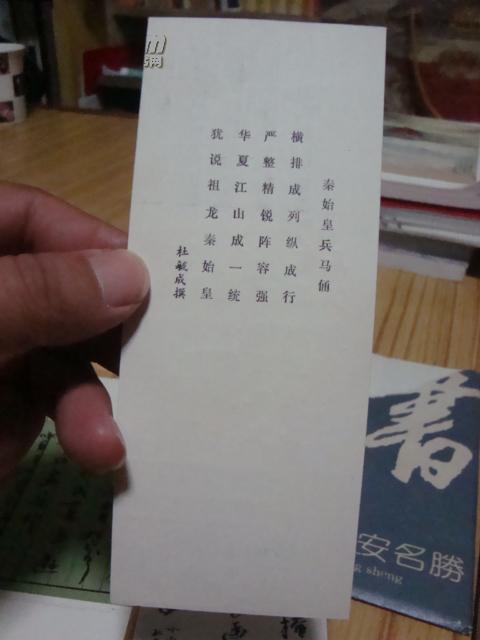 秦始皇兵马俑
横排成列纵成行
严整精锐阵容强
华夏江山成一统
犹说祖龙秦始皇
杜毓成撰
書
安名勝
sheng